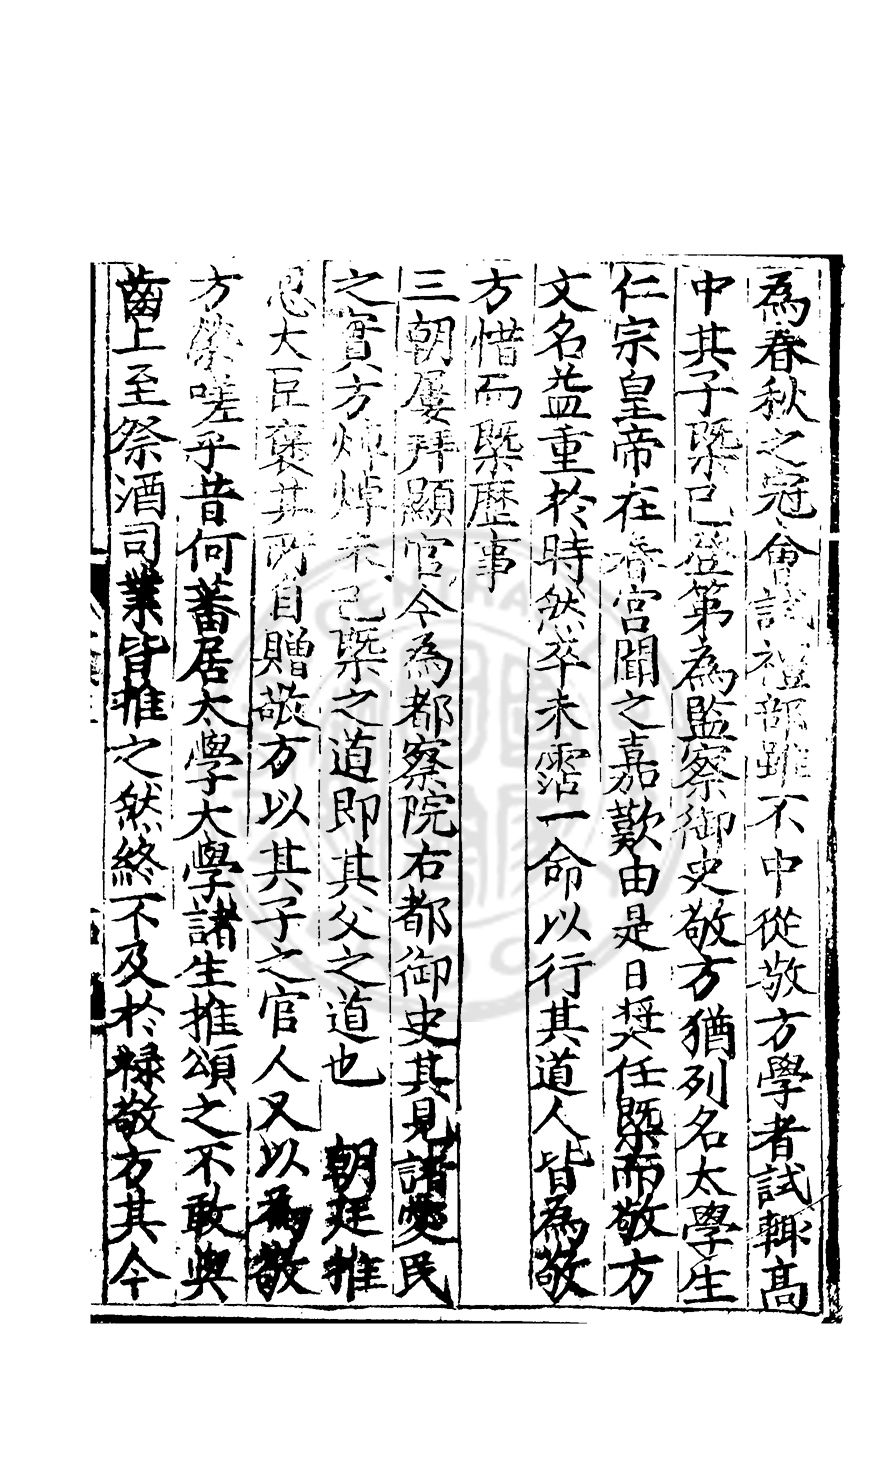 為春秋之冠會試禮部雖不中從敬方學者試輙高
中其子槩已登第為監察御史敬方猶列名太學生
仁宗皇帝在春宮聞之嘉歎由是日奬任槩而敬方
文名益重於時然卒未霑一命以行其道人皆為敬
方惜而槩歷事
三朝屢拜顯官今為都察院右都御史其見諸愛民
之實方焯焯未已槩之道即其父之道也　朝廷推
恩大臣褒其所自贈敬方以其子之官人又以為敬
方榮嗟乎昔何蕃居太學大學諸生推頌之不敢與
齒上至祭酒司業皆推之然終不及於祿敬方其今